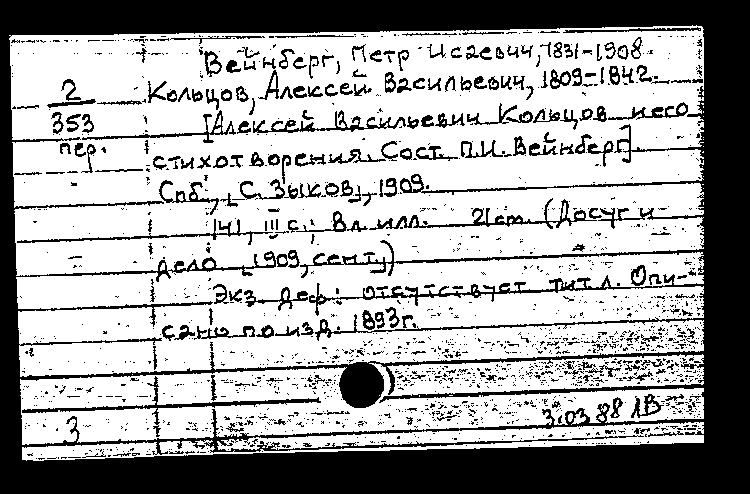 Вейнберг, Петр Исаевич, 1831-1908.
2 Кольцов, Алексей Васильевич, 1809-1842.
353 [Алексей Васильевич Кольцов и его
пер. стихотворения. Сост. П.И. Вейнберг].
Спб., [С. Зыков], 1909.
141, III с.; 8 л. илл. 21 cm. (Досуг и
дело [1909, сент.])
Экз. деф.: отсутствует тит. л. Опи-
сано по изд. 1893 г.
3.03 88
3